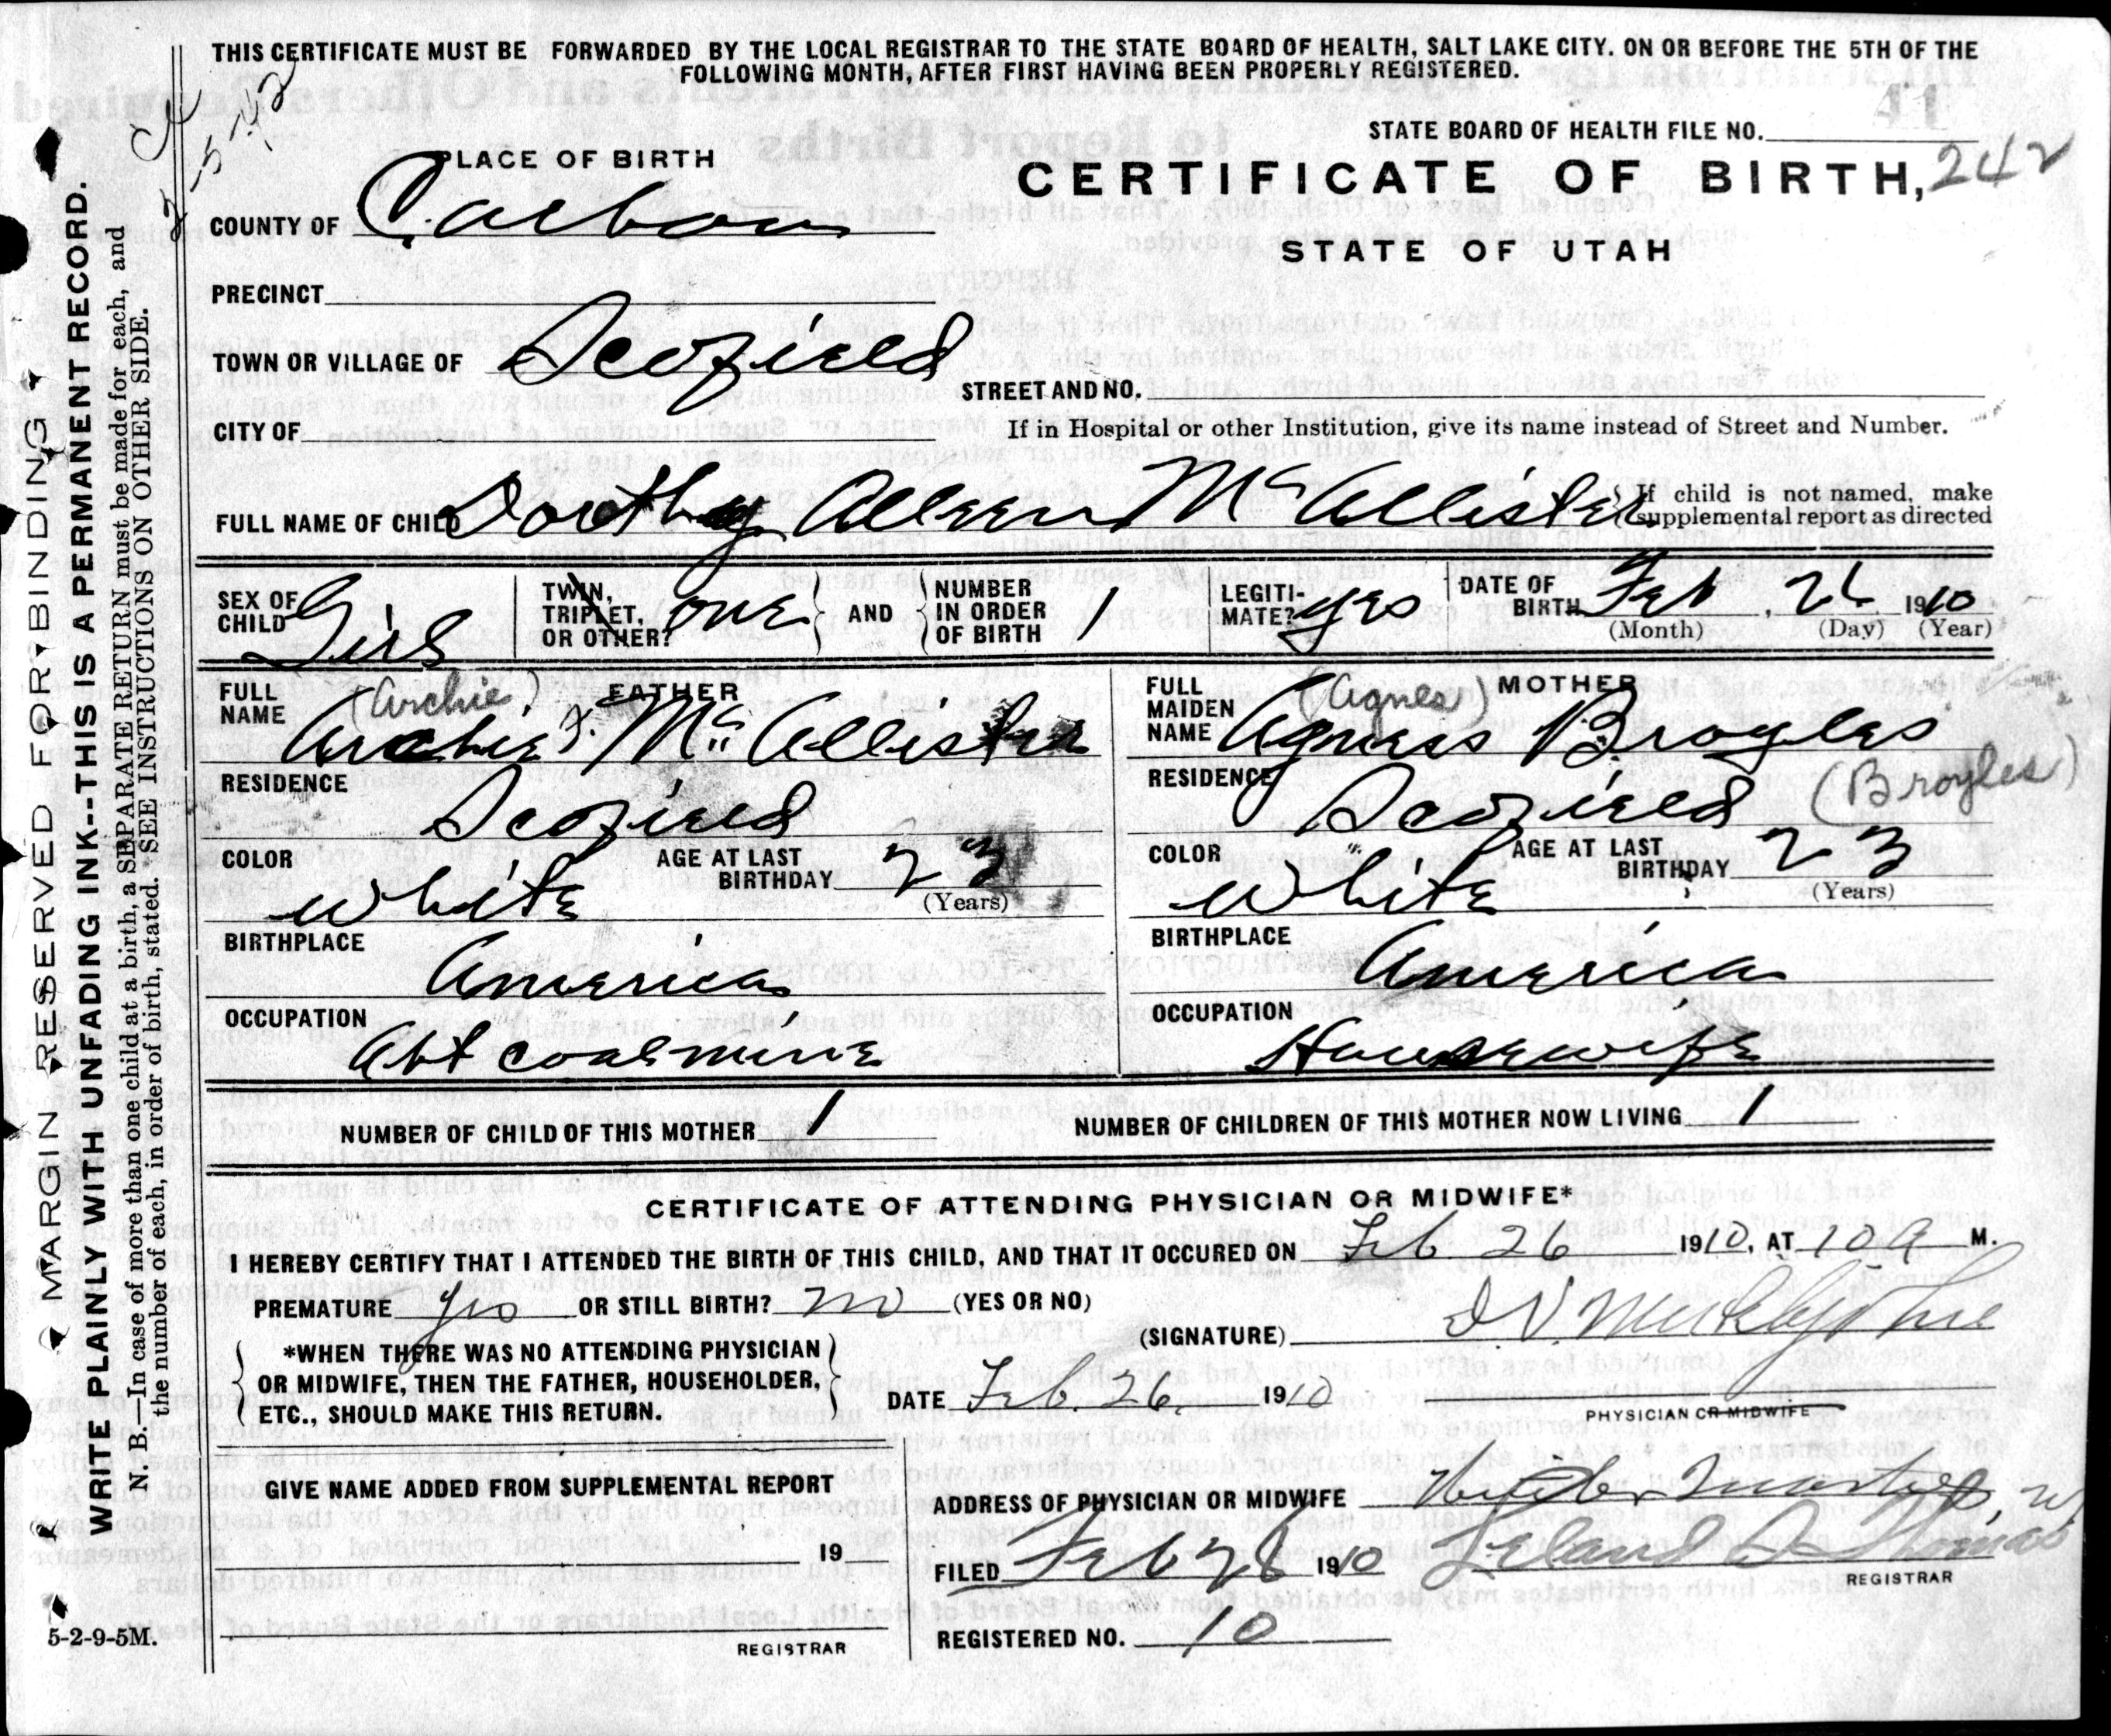 THIS CERTIFICATE MUST BE FORWARDED BY THE LOCAL REGISTRAR TO THE STATE BOARD OF HEALTH, SALT LAKE CITY. ON OR BEFORE THE 5TH OF THE
FOLLOWING MONTH, AFTER FIRST HAVING BEEN PROPERLY REGISTERED.
STATE BOARD OF HEALTH FILE NO.
41
2-5-42
PLACE OF BIRTH
CERTIFICATE OF BIRTH, 242
COUNTY OF Carbon
STATE OF UTAH
PRECINCT
TOWN OR VILLAGE OF Scofield
STREET AND NO.
CITY OF
If in Hospital or other Institution, give its name instead of Street and Number.
FULL NAME OF CHILD Dorothy Alleen McAllister
If child is not named, make
supplemental report as directed
SEX OF CHILD Girl
TWIN, TRIPLET, OR OTHER? one
AND
NUMBER IN ORDER OF BIRTH 1
LEGITI-MATE? yes
DATE OF BIRTH Feb, 26 1910
(Month) (Day) (Year)
FATHER
FULL NAME (Archie) Archie McAllister
RESIDENCE
Scofield
COLOR White
AGE AT LAST BIRTHDAY 23
(Years)
BIRTHPLACE
America
OCCUPATION
Abt coal mine
MOTHER
FULL MAIDEN NAME (Agnes) Agness Broyles
RESIDENCE
Scofield (Broyles)
COLOR White
AGE AT LAST BIRTHDAY 23
(Years)
BIRTHPLACE
America
OCCUPATION
Housewife
NUMBER OF CHILD OF THIS MOTHER 1
NUMBER OF CHILDREN OF THIS MOTHER NOW LIVING 1
CERTIFICATE OF ATTENDING PHYSICIAN OR MIDWIFE*
I HEREBY CERTIFY THAT I ATTENDED THE BIRTH OF THIS CHILD, AND THAT IT OCCURED ON Feb 26 1910, AT 10 A M.
PREMATURE yes OR STILL BIRTH? no (YES OR NO)
(SIGNATURE)
*WHEN THERE WAS NO ATTENDING PHYSICIAN
OR MIDWIFE, THEN THE FATHER, HOUSEHOLDER,
ETC., SHOULD MAKE THIS RETURN.
DATE Feb. 26, 1910
PHYSICIAN OR MIDWIFE
GIVE NAME ADDED FROM SUPPLEMENTAL REPORT
19
REGISTRAR
ADDRESS OF PHYSICIAN OR MIDWIFE Winter Quarters,
FILED Feb 28 1910 Leland D Thomas
REGISTRAR
REGISTERED NO. 10
MARGIN RESERVED FOR BINDING
WRITE PLAINLY WITH UNFADING INK--THIS IS A PERMANENT RECORD.
N. B.—In case of more than one child at a birth, a SEPARATE RETURN must be made for each, and
the number of each, in order of birth, stated. SEE INSTRUCTIONS ON OTHER SIDE.
5-2-9-5M.